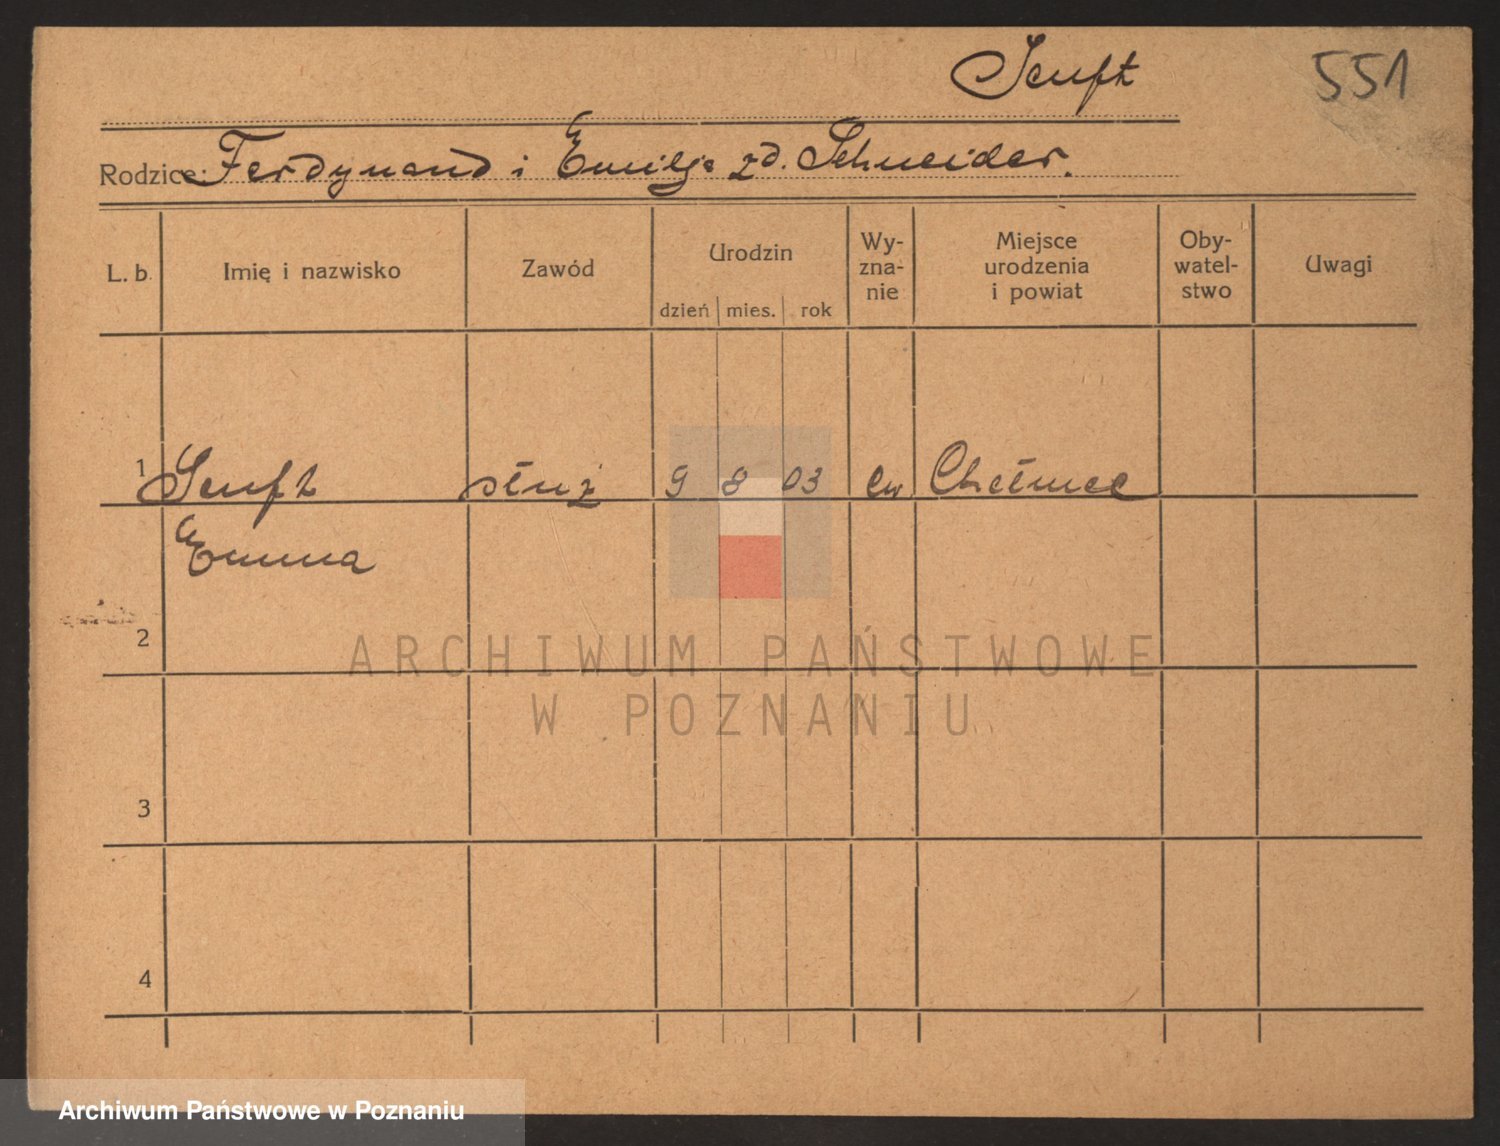 Senft 551
Rodzice: Ferdynand i Emilja zd. Schneider.
L. b. Imię i nazwisko Zawód Urodzin dzień mies. rok Wy-zna-nie Miejsce urodzenia i powiat Oby-watel-stwo Uwagi
1 Senft służ 9 8 03 ew Chełmce
Emma
2
ARCHIWUM PAŃSTWOWE
W POZNANIU
3
4
Archiwum Państwowe w Poznaniu